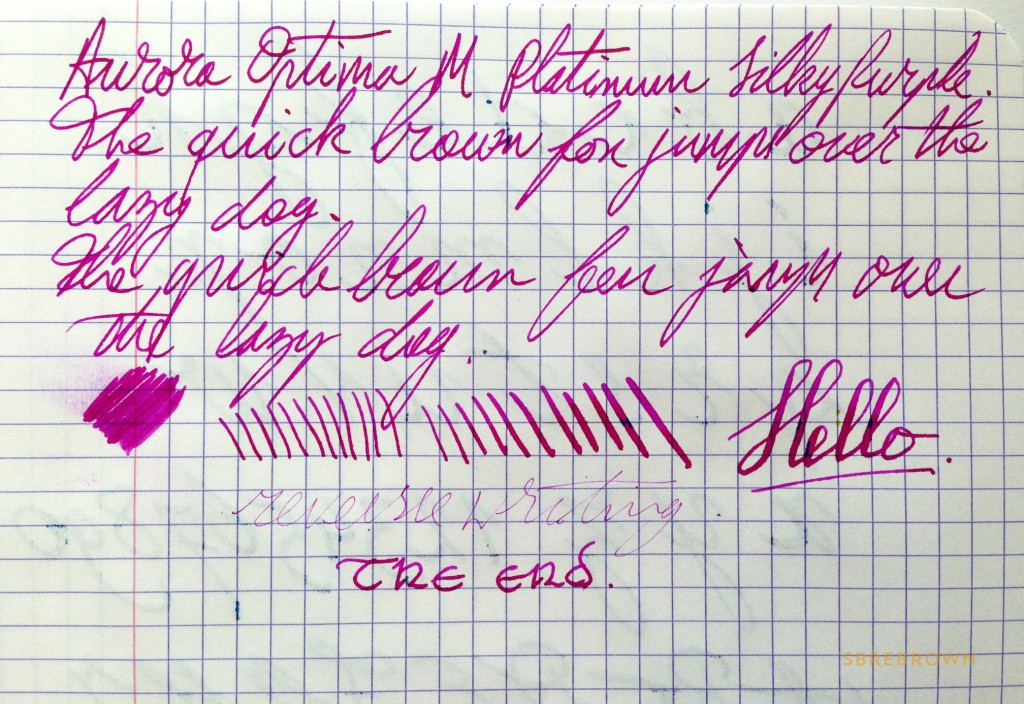 Aurora Optima M Platinum Silky Purple.
The quick brown fox jumps over the
lazy dog.
The quick brown fox jumps over
the lazy dog.
Hello.
reverse writing.
THE END.
SBREBROWN